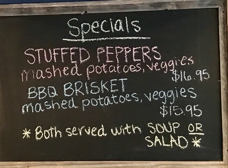 Specials
STUFFED PEPPERS
mashed potatoes, veggies
$16.95
BBQ BRISKET
mashed potatoes, veggies
$15.95
* Both served with SOUP OR
SALAD *